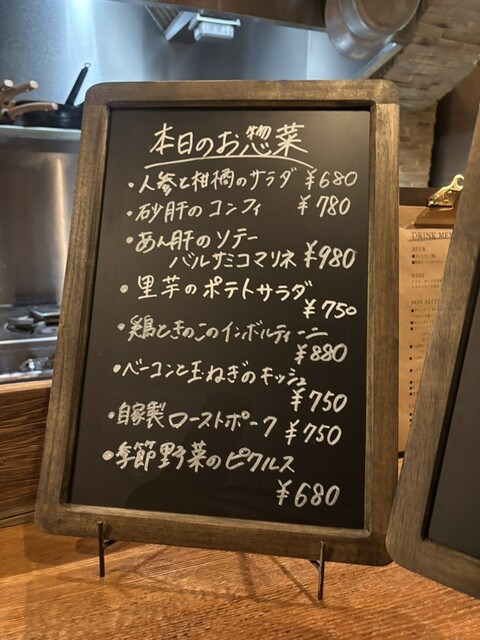 本日のお惣菜
・人参と柑橘のサラダ ¥680
・砂肝のコンフィ ¥780
・あん肝のソテー
バルサミコマリネ ¥980
・里芋のポテトサラダ
¥750
・鶏ときのこのインボルティーニ
¥880
・ベーコンと玉ねぎのキッシュ
¥750
・自家製ローストポーク ¥750
・季節野菜のピクルス
¥680
DRINK MEN
BEER
WINE
NON ALCO